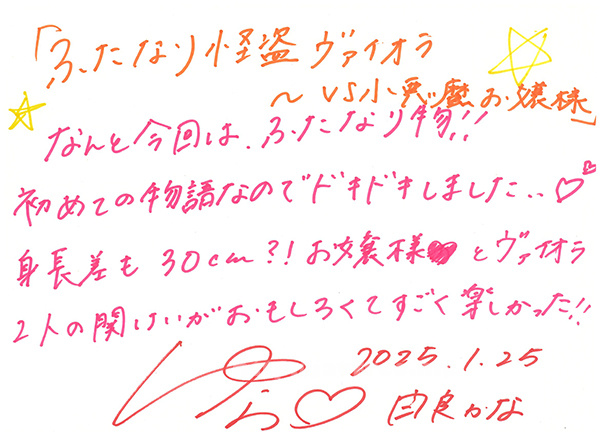 「ふたなり怪盗ヴァイオラ
～VS小悪魔お嬢様」
なんと今回は、ふたなり物!!
初めての物語なのでドキドキしました..♡
身長差も30cm?!お嬢様♥とヴァイオラ
2人の関けいがおもしろくてすごく楽しかった!!
2025.1.25
ゆら♡ 由良かな